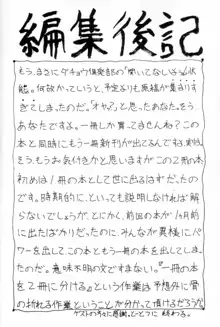 編集後記
もう、まさにダチョウ倶楽部の"聞いてないよぅ"状
態。何故かっていうと、予定よりも原稿が集まりす
ぎてしまったのだ。"オヤ?"と思ったあなた。そう
あなたですよ。一冊しか買ってきませんね?この
本と同時にもう一冊新刊が出てるんですよ
もう、もうお気付きかと思いますがこの2冊の本
初めは1冊の本として世に出るはずだったので
す。時期的に、といっても説明しなければ解
らないでしょうが、とにかく、前回の本が1ヶ月前
に出たばかりだったのに、みんなが異様にパ
ワーを出して、この本ともう一冊の本を出してしま
ったのだ。意味不明の文ですまない。"一冊の本
を2冊に分ける"という作業は予想外に骨
の折れる作業ということが分かって頂けるだろうか
ゲストの方々に感謝。ととつに終わる。